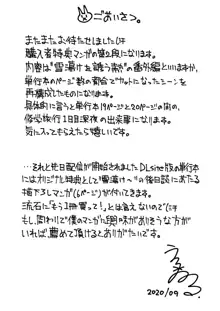 ごあいさつ。
またまたお待たせしました(汗
購入者特典マンガの第2段になります。
内容は"雪溶けを誘う熱"の番外編といいますか、
単行本のページ数の都合でカットになったシーンを
再構成したものになります。
具体的に言うと単行本19ページと20ページの間の、
修学旅行1日目深夜の出来事になります。
気に入ってもらえたら嬉しいです。
…それと先日配信が開始されましたDLsite版の単行本
にはオリジナル特典として"雪溶け〜"の後日談にあたる
描下ろしマンガ(6ページ)が付いてきます。
流石に「もう1冊買って！」とは言えないので(汗
もし周りで僕のマンガに興味がありそうな方が
いれば、薦めて頂けるとありがたいです。
2020/09